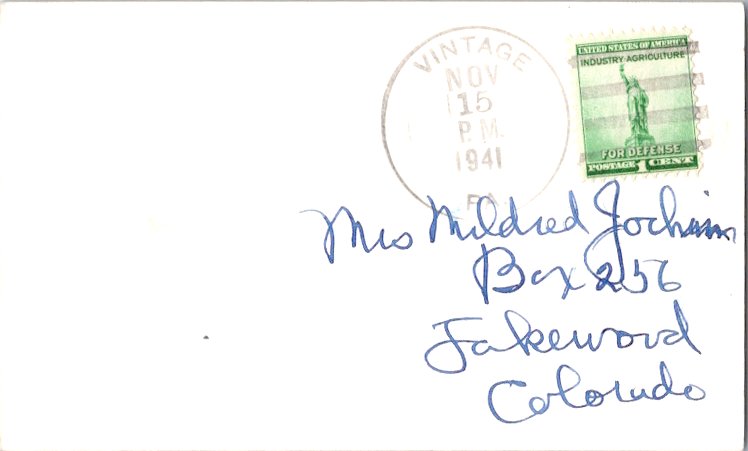 VINTAGE
NOV
15
P.M.
1941
PA.
UNITED STATES OF AMERICA
INDUSTRY AGRICULTURE
FOR DEFENSE
POSTAGE 1 CENT
Mrs Mildred Jochim
Box 256
Lakewood
Colorado